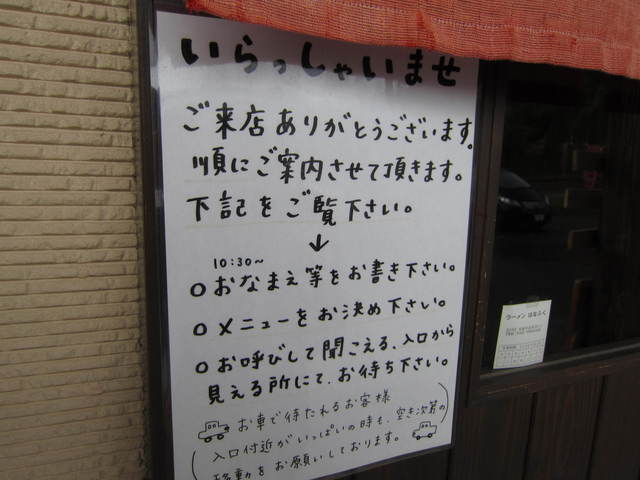 いらっしゃいませ
ご来店ありがとうございます。
順にご案内させて頂きます。
下記をご覧下さい。
↓
10:30~
○おなまえ等をお書き下さい。
○メニューをお決め下さい。
○お呼びして聞こえる、入口から
見える所にて、お待ち下さい。
お車で待たれるお客様
入口付近がいっぱいの時も、空き次第の
移動をお願いしております。
ラーメン はなふく